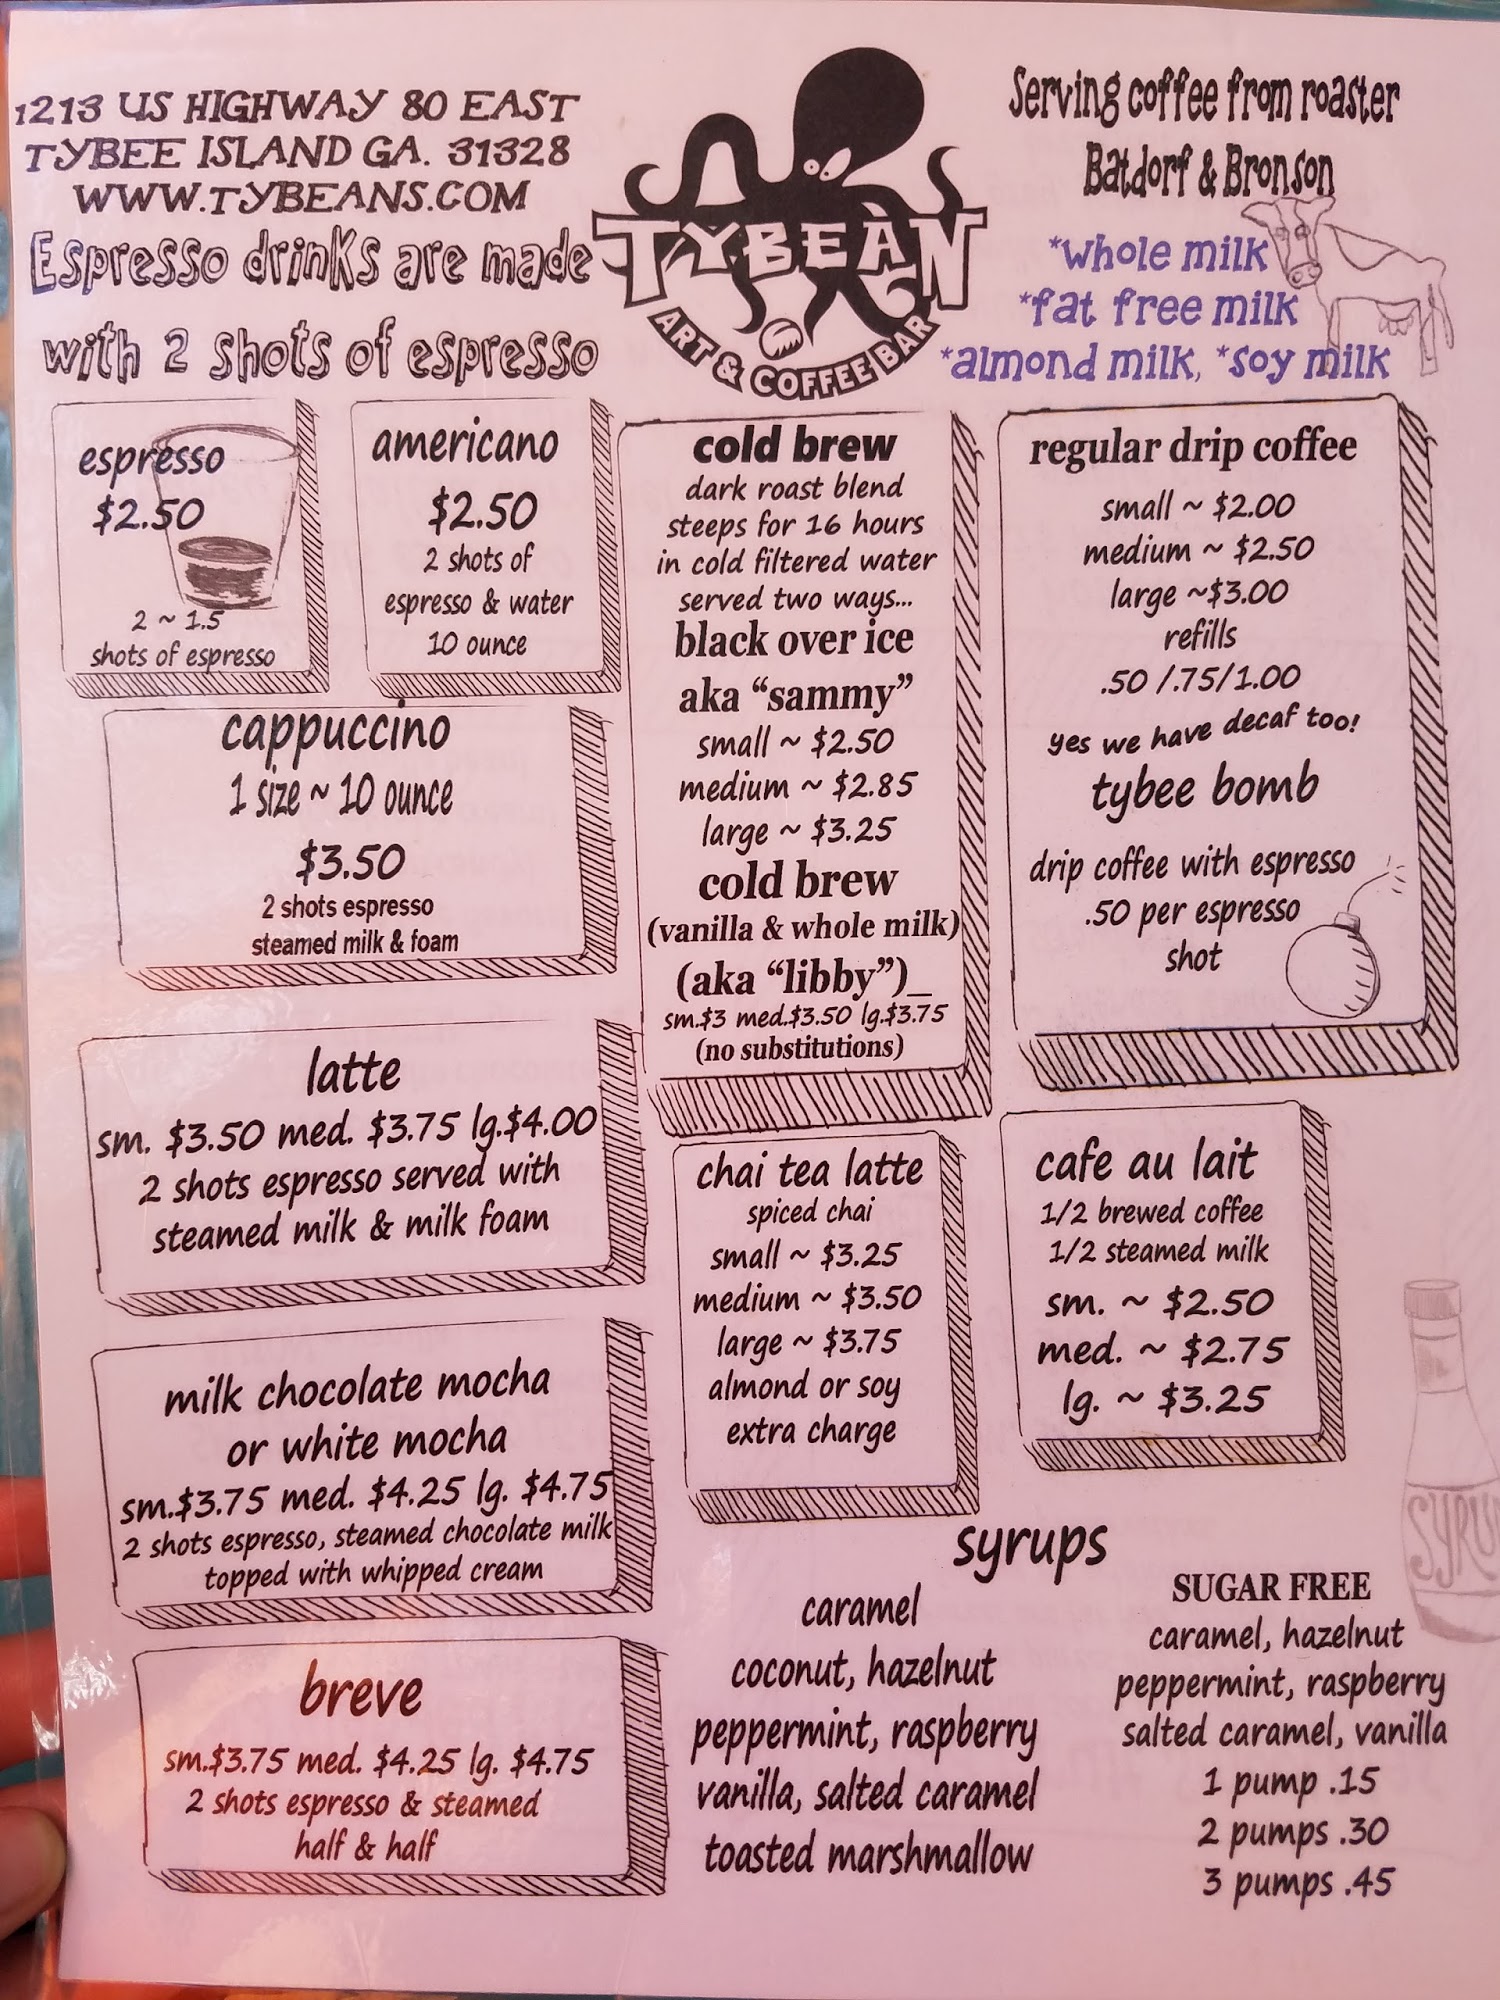 1213 US HIGHWAY 80 EAST
TYBEE ISLAND GA. 31328
WWW.TYBEANS.COM
Espresso drinks are made
with 2 shots of espresso
TYBEAN
ART & COFFEE BAR
Serving coffee from roaster
Batdorf & Bronson
*whole milk
*fat free milk
*almond milk, *soy milk
espresso
$2.50
2 ~ 1.5
shots of espresso
americano
$2.50
2 shots of
espresso & water
10 ounce
cappuccino
1 size ~ 10 ounce
$3.50
2 shots espresso
steamed milk & foam
latte
sm. $3.50 med. $3.75 lg.$4.00
2 shots espresso served with
steamed milk & milk foam
milk chocolate mocha
or white mocha
sm.$3.75 med. $4.25 lg. $4.75
2 shots espresso, steamed chocolate milk
topped with whipped cream
breve
sm.$3.75 med. $4.25 lg. $4.75
2 shots espresso & steamed
half & half
cold brew
dark roast blend
steeps for 16 hours
in cold filtered water
served two ways...
black over ice
aka “sammy”
small ~ $2.50
medium ~ $2.85
large ~ $3.25
cold brew
(vanilla & whole milk)
(aka “libby”)_
sm.$3 med.$3.50 lg.$3.75
(no substitutions)
chai tea latte
spiced chai
small ~ $3.25
medium ~ $3.50
large ~ $3.75
almond or soy
extra charge
regular drip coffee
small ~ $2.00
medium ~ $2.50
large ~$3.00
refills
.50 /.75/1.00
yes we have decaf too!
tybee bomb
drip coffee with espresso
.50 per espresso
shot
cafe au lait
1/2 brewed coffee
1/2 steamed milk
sm. ~ $2.50
med. ~ $2.75
lg. ~ $3.25
syrups
caramel
coconut, hazelnut
peppermint, raspberry
vanilla, salted caramel
toasted marshmallow
SUGAR FREE
caramel, hazelnut
peppermint, raspberry
salted caramel, vanilla
1 pump .15
2 pumps .30
3 pumps .45
SYRU